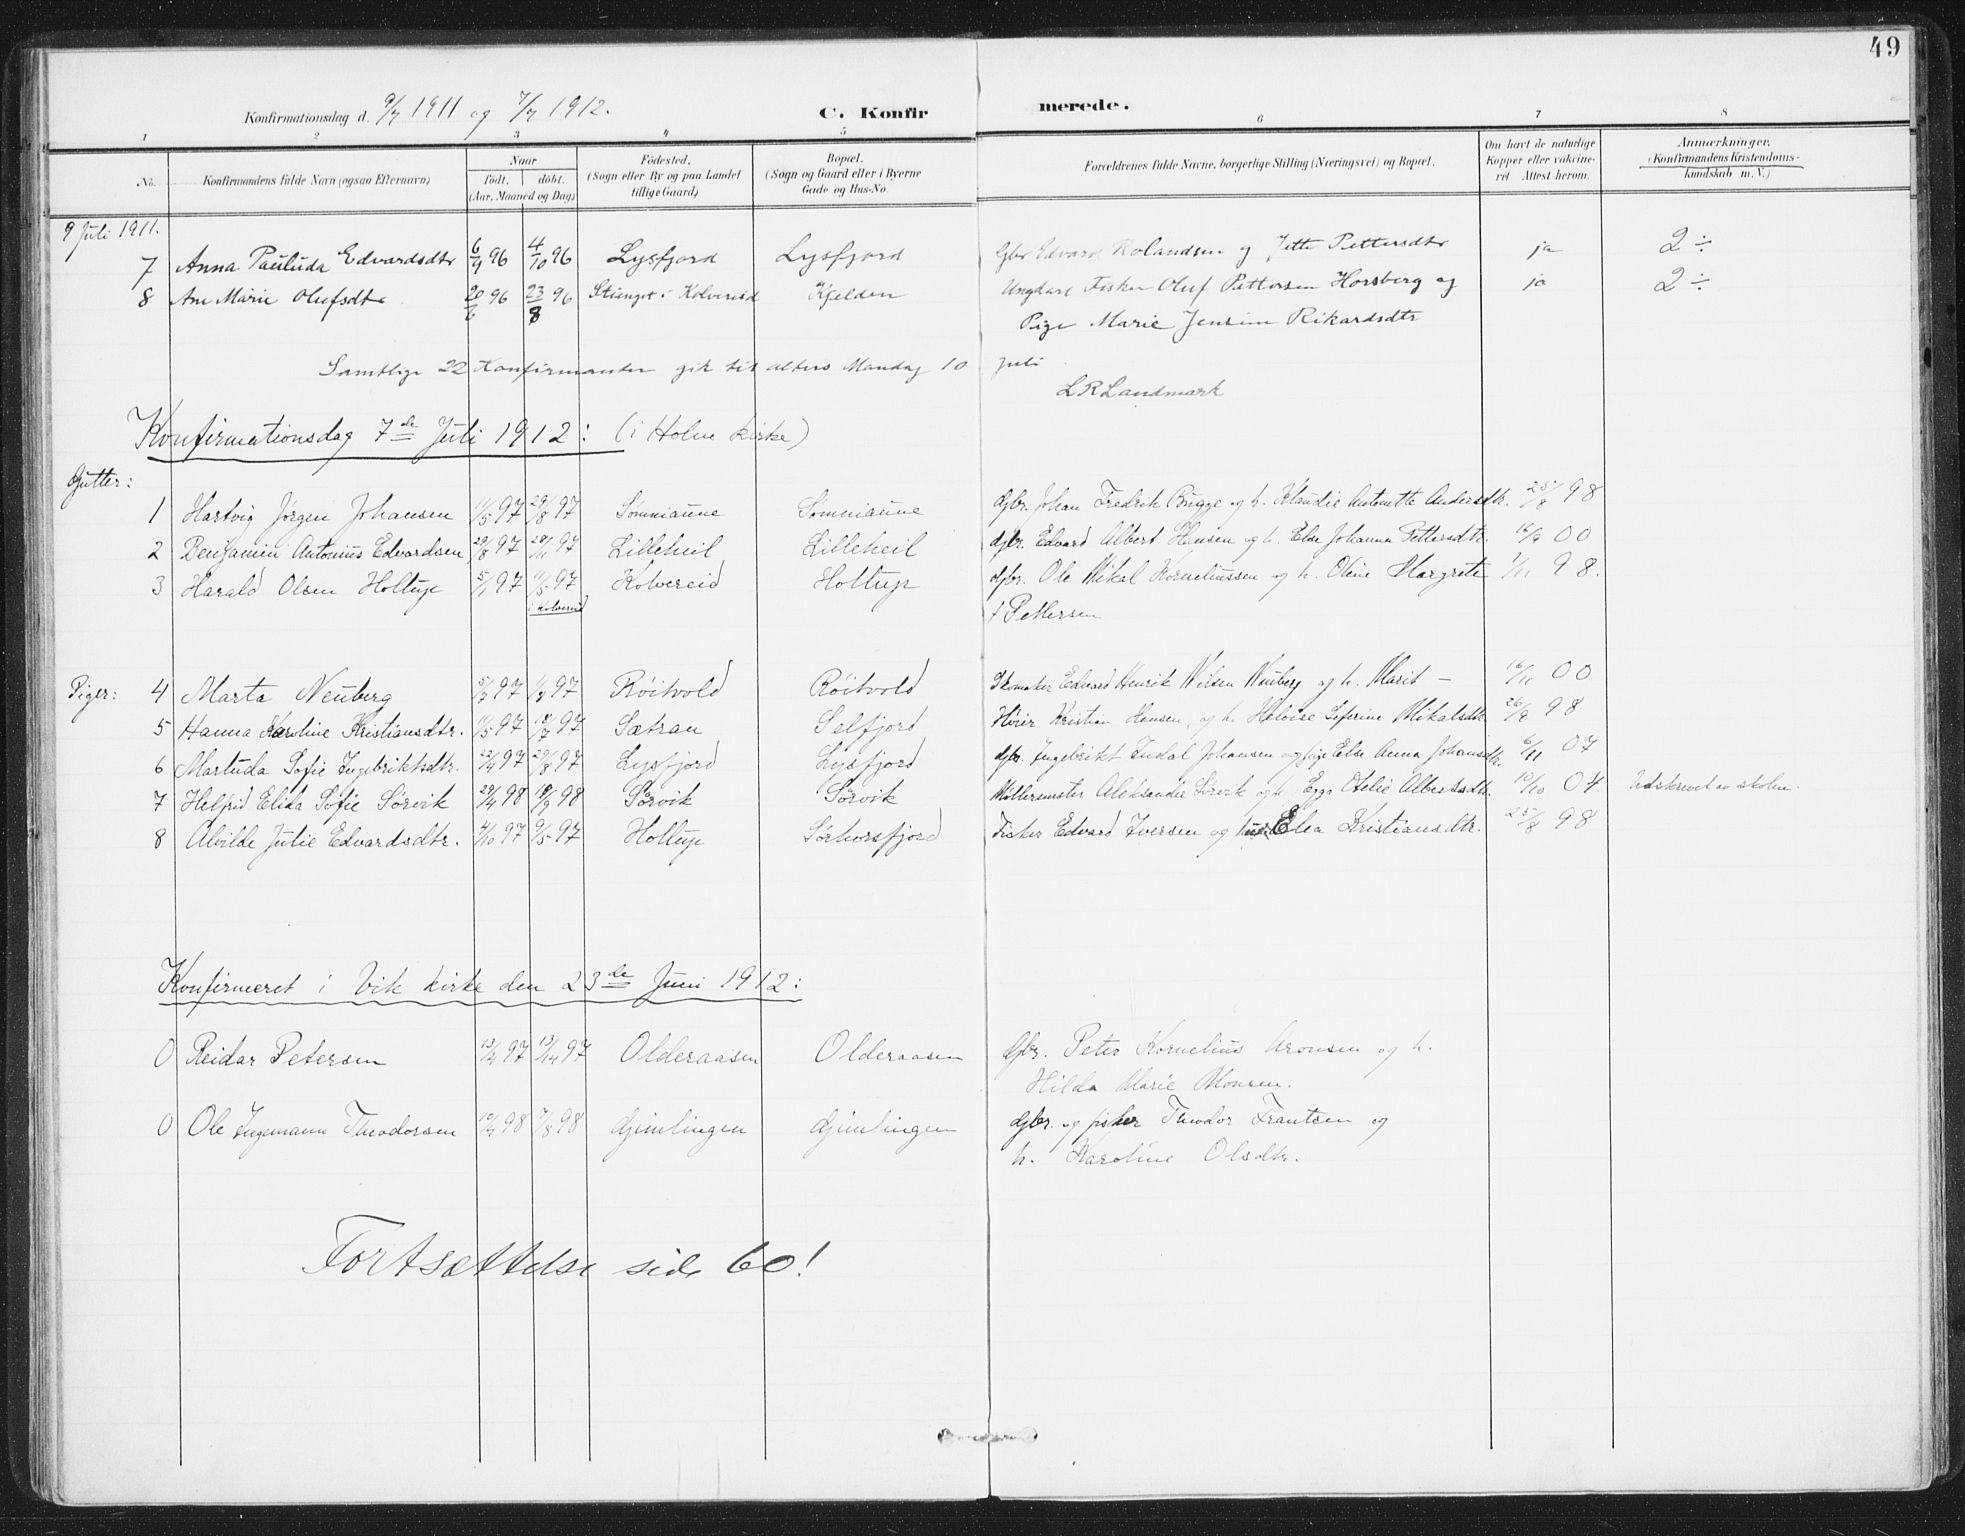 49
Konfirmationsdag d. 9/7 1911 og 7/7 1912. C. Konfirmerede.
1 2 3 4 5 6 7 8
No. Konfirmandens fulde Navn (ogsaa Efternavn) Naar født. døbt. (Aar, Maaned og Dag) Fødested. (Sogn eller By og paa Landet tillige Gaard) Bopæl. (Sogn og Gaard eller i Byerne Gade og Hus-No. Forældrenes fulde Navne, borgerlige Stilling (Næringsvei) og Bopæl. Om havt de naturlige Kopper eller vakcineret Attest herom. Anmærkninger. (Konfirmandens Kristendomskundskab m. V.)
9 Juli 1911.
7 Anna Pauluda Edvardsdtr 6/9 96 4/10 96 Lysfjord Lysfjord Gbr Edvard Rolandsen og Jette Pettersdtr ja 2÷
8 Ane Marie Olufsdtr 20/6 96 23/8 96 i Kolvereid Kjelden Ungdarl Fisker Oluf Pettersen Horsberg og ja 2÷
Pige Marie Jensine Rikardsdtr
Samtlige 22 Konfirmanter gik til alters Mandag 10 juli
L R Landmark
Konfirmationsdag 7de Juli 1912: (i Holm kirke)
Gutter:
1 Hartvig Jørgen Johansen 11/5 97 29/8 97 Sømniaune Sømniaune Gbr. Johan Fredrik Brygge og h. Klaudie Antonette Andersdtr. 25/8 98
2 Benjamin Antonius Edvardsen 29/8 97 28/11 97 Lilleheil Lilleheil Gbr. Edvard Albert Hansen og h. Else Johanna Pettersdtr. 16/9 00
3 Harald Olsen Holtuje 5/1 97 11/5 97 Kolvereid Holtuje Gbr. Ole Mikal Korneliussen og h. Oline Margrete 1/11 98.
i Kolvereid f Pettersen
Piger: 4 Marta Neuberg 5/2 97 97 Røitvold Røitvold Skomaker Edvard Henrik Nilsen Neuberg og h. Marit — 16/11 00
5 Hanna Karoline Kristiansdtr. 11/5 97 18/7 97 Sætran Selfjord Kristian Hansen og h. Heloise Seferine Mikalsdtr. 26/8 98
6 Martuda Sofie Ingebriktsdtr. 22/4 97 29/8 97 Lysfjord Lysfjord Gbr. Ingebrikt Indal Johansen og pige Else Anna Johansdtr. 6/11 07
7 Helfrid Elida Sofie Sørvik 29/4 98 18/9 98 Sørvik Sørvik Møllermester Aleksander Sørvik og h. Otelie Albertsdtr. 10/10 04. Udskrevet av skolen.
8 Alvilde Julie Edvardsdtr. 4/10 97 9/5 97 Holtuje Sørhorsfjord Fisker Edvard Iversen og Elea Kristiansdtr. 25/8 98
Konfirmeret i Vik kirke den 23de Juni 1912:
0 Reidar Petersen 13/4 97 13/14 97 Olderaasen Olderaasen Gbr. Peter Kornelius Aronsen og h.
Hilda Marie Monsen.
0 Ole Ingemann Theodorsen 10/4 98 7/8 98 Gjimlingen Gjimlingen Gbr. og fisker Theodor Frantsen og
h. Karoline Olsdtr.
Fortsættelse side 60!